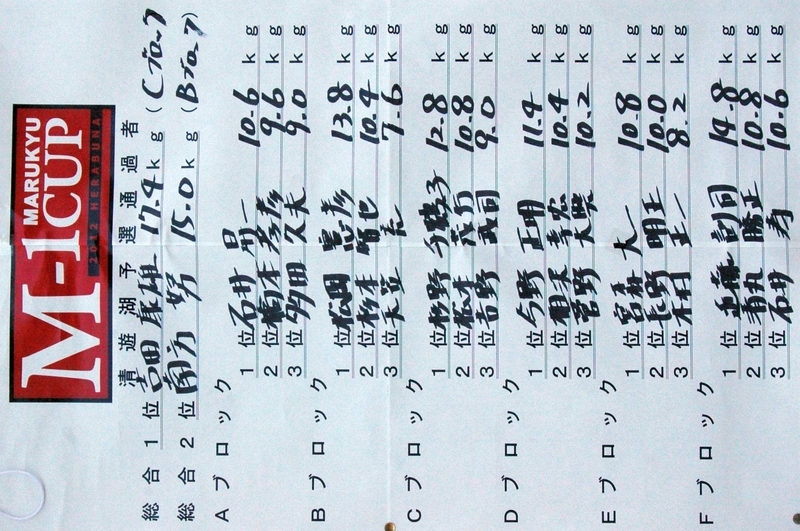 MARUKYU
M-1CUP
2012 HERABUNA
清遊湖予選通過者
総合1位 吉田康雄 17.4kg(Cブロック)
総合2位 南方努 15.0kg(Bブロック)
Aブロック
1位 石井昇一 10.6kg
2位 橋本孝彦 9.6kg
3位 多田久夫 9.0kg
Bブロック
1位 松岡忠彦 13.8kg
2位 杉本智也 10.4kg
3位 7.6kg
Cブロック
1位 杉野今朝子 12.8kg
2位 松本茂 10.8kg
3位 吉野武司 9.0kg
Dブロック
1位 今野正明 11.4kg
2位 幸宏 10.4kg
3位 宮野大 10.2kg
Eブロック
1位 宮森大一 10.8kg
2位 長野明 10.0kg
3位 木村正一 8.2kg
Fブロック
1位 近藤 14.8kg
2位 青丸勝正 10.8kg
3位 石井寿 10.6kg